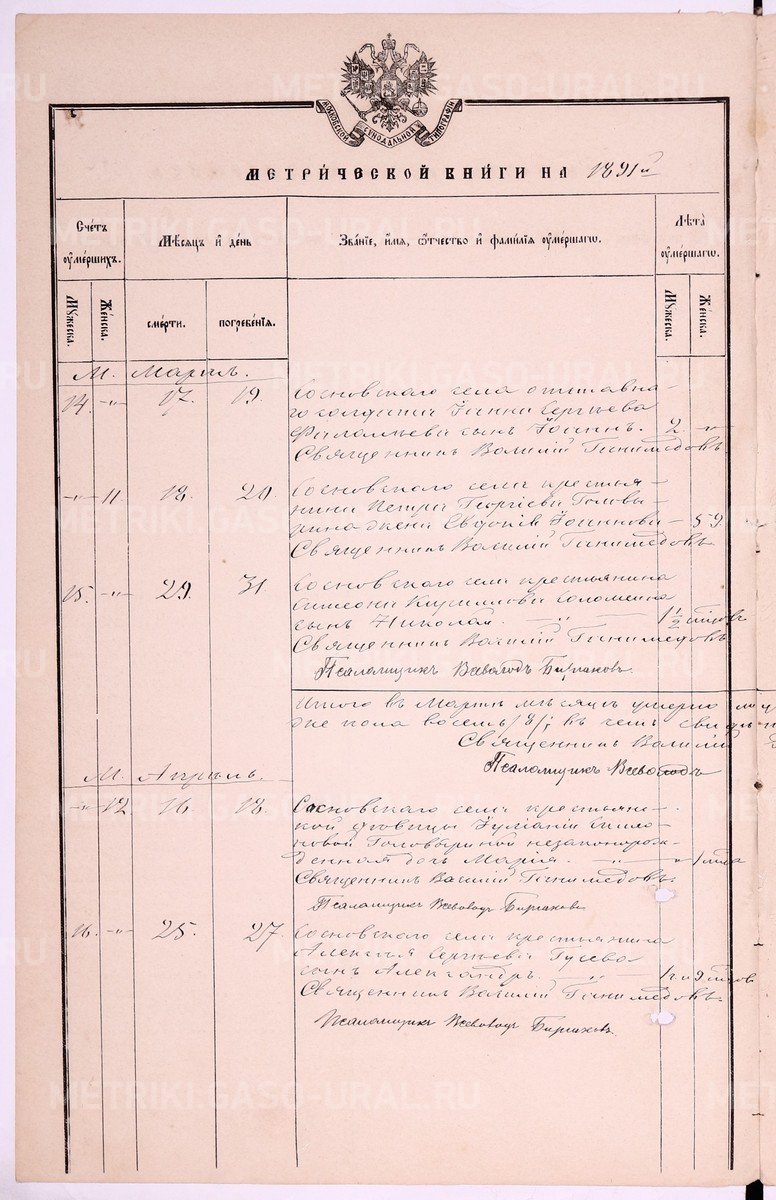 МОСКОВСКОЙ СѴНОДАЛЬНОЙ ТИПОГРАФІИ
МЕТРИ́ЧЕСКОЙ КНИ́ГИ НА 1891й
Сче́тъ ᲂу҆ме́ршихъ.
Мѣ́сяцъ и҆ де́нь
Зва́нїе, и҆́мя, ѻ҆́тчество и҆ фами́лїя ᲂу҆ме́ршагѡ.
Лѣта̀ ᲂу҆ме́ршагѡ.
Мꙋ́жеска.
Же́нска.
сме́рти.
погребе́нїя.
Мꙋ́жеска.
Же́нска.
М. Мартъ.
14. -"- 17. 19. Сосновскаго села отставна-
го солдата Іоанна Сергѣева
сынъ Іоаннъ. 2 -"-
Священникъ Василій Ганимедовъ
-"- 11. 18. 20. Сосновскаго села крестья-
нина Петра Георгіева Головы-
рина жена Евдокія Іоаннова - 59.
Священникъ Василій Ганимедовъ
15. -"- 29. 31. Сосновскаго села крестьянина
Симеона Кириллова Соломеина
сынъ Николай. -"- 1½ мѣсяц.
Священникъ Василій Ганимедовъ
Псаломщикъ Всеволодъ Бирюковъ.
Итого въ Мартѣ мѣсяцѣ умерло
пола восемь /8/; въ чемъ
Священникъ Василій
Псаломщикъ Всеволодъ
М. Апрѣль.
-"- 12 16. 18. Сосновскаго села крестьянс-
кой дѣвицы Іуліаніи
Головыриной незаконорож-
денная дочь Марія. -"- -"- 1 года
Священникъ Василій Ганимедовъ.
Псаломщикъ Всеволодъ Бирюковъ
16. -"- 25. 27. Сосновскаго села крестьянина
Алексѣя Сергѣева Гусева
сынъ Александръ. -"-
Священникъ Василій Ганимедовъ.
Псаломщикъ Всеволодъ Бирюковъ.
METRIKI.GASO-URAL.RU